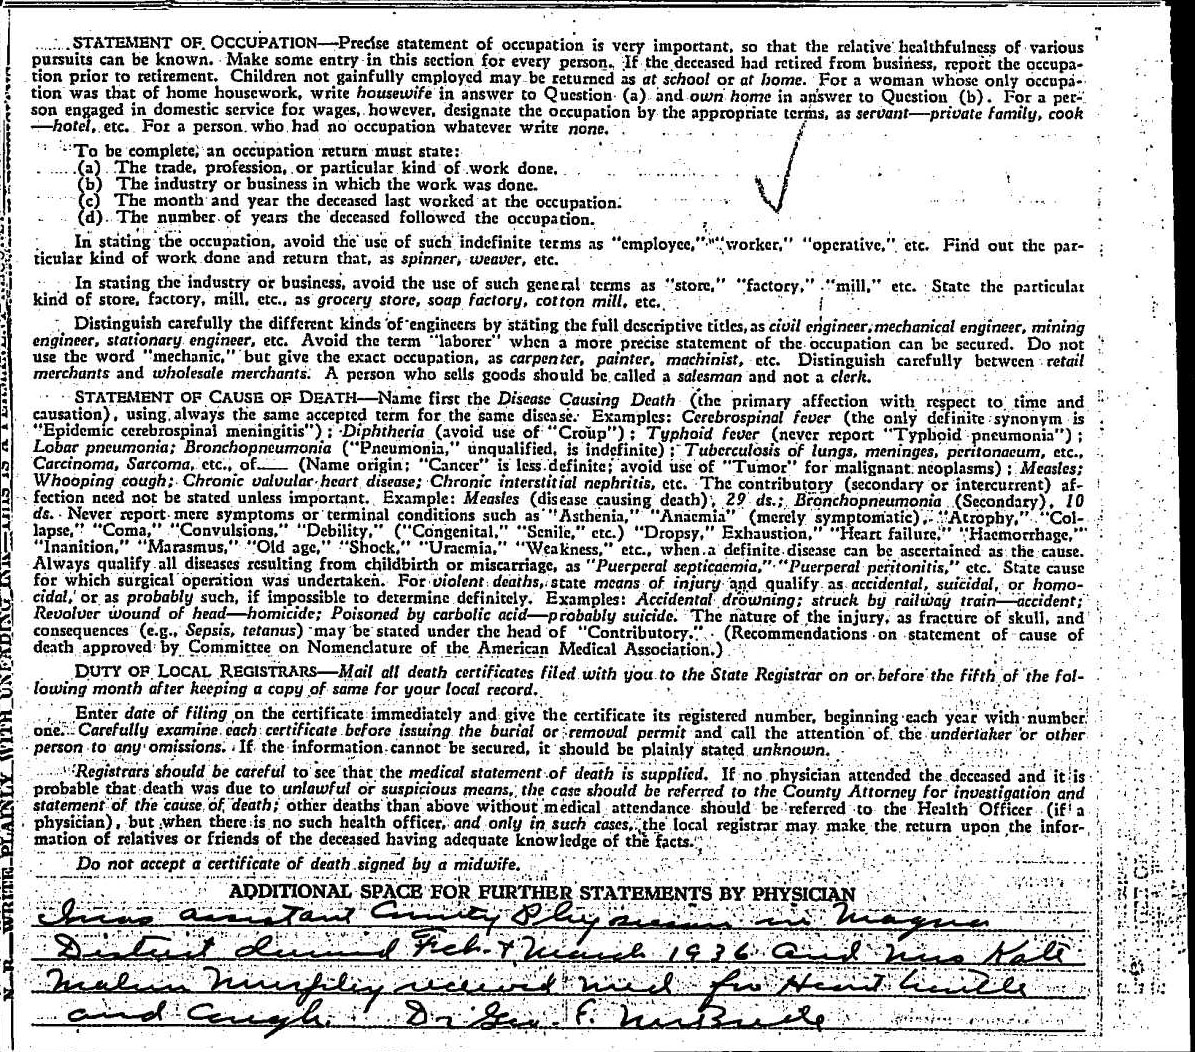 STATEMENT OF OCCUPATION—Precise statement of occupation is very important, so that the relative healthfulness of various
pursuits can be known. Make some entry in this section for every person. If the deceased had retired from business, report the occupa-
tion prior to retirement. Children not gainfully employed may be returned as at school or at home. For a woman whose only occupa-
tion was that of home housework, write housewife in answer to Question (a) and own home in answer to Question (b). For a per-
son engaged in domestic service for wages, however, designate the occupation by the appropriate terms, as servant—private family, cook
—hotel, etc. For a person who had no occupation whatever write none.
To be complete, an occupation return must state:
(a) The trade, profession, or particular kind of work done.
(b) The industry or business in which the work was done.
(c) The month and year the deceased last worked at the occupation.
(d) The number of years the deceased followed the occupation.
In stating the occupation, avoid the use of such indefinite terms as "employee," "worker," "operative," etc. Find out the par-
ticular kind of work done and return that, as spinner, weaver, etc.
In stating the industry or business, avoid the use of such general terms as "store," "factory," "mill," etc. State the particular
kind of store, factory, mill, etc., as grocery store, soap factory, cotton mill, etc.
Distinguish carefully the different kinds of engineers by stating the full descriptive titles, as civil engineer, mechanical engineer, mining
engineer, stationary engineer, etc. Avoid the term "laborer" when a more precise statement of the occupation can be secured. Do not
use the word "mechanic," but give the exact occupation, as carpenter, painter, machinist, etc. Distinguish carefully between retail
merchants and wholesale merchants. A person who sells goods should be called a salesman and not a clerk.
STATEMENT OF CAUSE OF DEATH—Name first the Disease Causing Death (the primary affection with respect to time and
causation), using always the same accepted term for the same disease. Examples: Cerebrospinal fever (the only definite synonym is
"Epidemic cerebrospinal meningitis"); Diphtheria (avoid use of "Croup"); Typhoid fever (never report "Typhoid pneumonia");
Lobar pneumonia; Bronchopneumonia ("Pneumonia," unqualified, is indefinite); Tuberculosis of lungs, meninges, peritonaeum, etc.,
Carcinoma, Sarcoma, etc., of___ (Name origin; "Cancer" is less definite; avoid use of "Tumor" for malignant neoplasms); Measles;
Whooping cough; Chronic valvular heart disease; Chronic interstitial nephritis, etc. The contributory (secondary or intercurrent) af-
fection need not be stated unless important. Example: Measles (disease causing death), 29 ds.; Bronchopneumonia (Secondary), 10
ds. Never report mere symptoms or terminal conditions such as "Asthenia," "Anaemia" (merely symptomatic), "Atrophy," "Col-
lapse," "Coma," "Convulsions," "Debility," ("Congenital," "Senile," etc.) "Dropsy," Exhaustion," "Heart failure," "Haemorrhage,"
"Inanition," "Marasmus," "Old age," "Shock," "Uraemia," "Weakness," etc., when a definite disease can be ascertained as the cause.
Always qualify all diseases resulting from childbirth or miscarriage, as "Puerperal septicaemia," "Puerperal peritonitis," etc. State cause
for which surgical operation was undertaken. For violent deaths, state means of injury and qualify as accidental, suicidal, or homo-
cidal, or as probably such, if impossible to determine definitely. Examples: Accidental drowning; struck by railway train—accident;
Revolver wound of head—homicide; Poisoned by carbolic acid—probably suicide. The nature of the injury, as fracture of skull, and
consequences (e.g., Sepsis, tetanus) may be stated under the head of "Contributory." (Recommendations on statement of cause of
death approved by Committee on Nomenclature of the American Medical Association.)
DUTY OF LOCAL REGISTRARS—Mail all death certificates filed with you to the State Registrar on or before the fifth of the fol-
lowing month after keeping a copy of same for your local record.
Enter date of filing on the certificate immediately and give the certificate its registered number, beginning each year with number
one. Carefully examine each certificate before issuing the burial or removal permit and call the attention of the undertaker or other
person to any omissions. If the information cannot be secured, it should be plainly stated unknown.
Registrars should be careful to see that the medical statement of death is supplied. If no physician attended the deceased and it is
probable that death was due to unlawful or suspicious means, the case should be referred to the County Attorney for investigation and
statement of the cause of death; other deaths than above without medical attendance should be referred to the Health Officer (if a
physician), but when there is no such health officer, and only in such cases, the local registrar may make the return upon the infor-
mation of relatives or friends of the deceased having adequate knowledge of the facts.
Do not accept a certificate of death signed by a midwife.
ADDITIONAL SPACE FOR FURTHER STATEMENTS BY PHYSICIAN
I was assistant County Physician in Magna
District during Feb. & March 1936 and Mrs Kate
Murphy received med for Heart
and Cough. Dr Geo. F. McBride
N. B. WRITE PLAINLY WITH UNFADING INK—THIS IS A PERMANENT